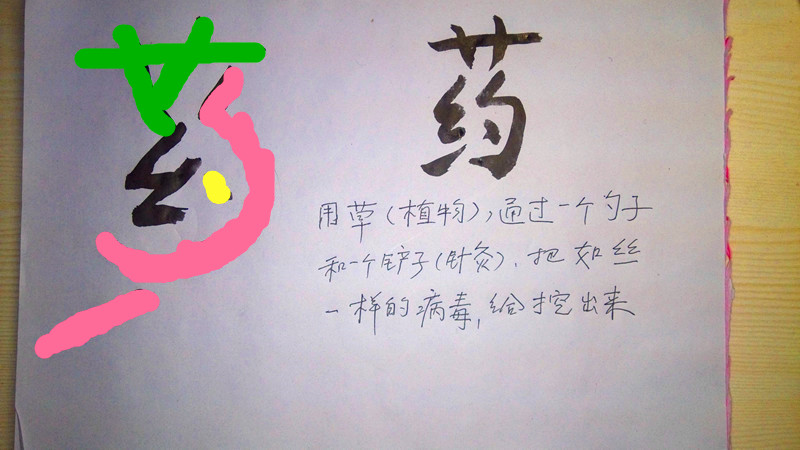 药 药
用草(植物),通过一个勺子
和一个铲子(针灸),把如丝
一样的病毒,给挖出来